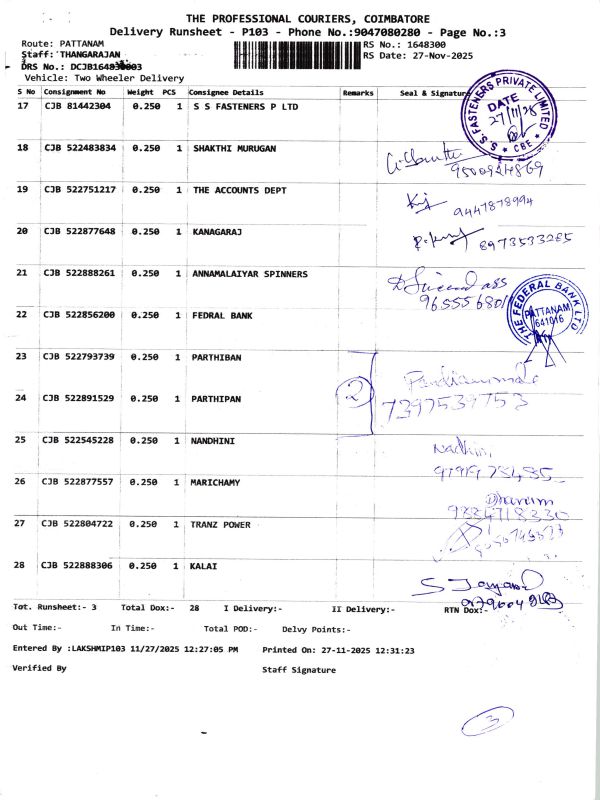 THE PROFESSIONAL COURIERS, COIMBATORE
Delivery Runsheet - P103 - Phone No.:9047080280 - Page No.:3
Route: PATTANAM RS No.: 1648300
Staff: THANGARAJAN RS Date: 27-Nov-2025
DRS No.:
Vehicle: Two Wheeler Delivery
S No Consignment No Weight PCS Consignee Details Remarks Seal & Signature
17 CJB 81442304 0.250 1 S S FASTENERS P LTD
S.S. FASTENERS PRIVATE LIMITED * CBE *
DATE
27/11/25
18 CJB 522483834 0.250 1 SHAKTHI MURUGAN
19 CJB 522751217 0.250 1 THE ACCOUNTS DEPT
9447878994
20 CJB 522877648 0.250 1 KANAGARAJ
8973533285
21 CJB 522888261 0.250 1 ANNAMALAIYAR SPINNERS
22 CJB 522856200 0.250 1 FEDRAL BANK
THE FEDERAL BANK LTD
PATTANAM
641016
23 CJB 522793739 0.250 1 PARTHIBAN
24 CJB 522891529 0.250 1 PARTHIPAN
2
7397539753
25 CJB 522545228 0.250 1 NANDHINI
Nadhini
26 CJB 522877557 0.250 1 MARICHAMY
9884718330
27 CJB 522804722 0.250 1 TRANZ POWER
28 CJB 522888306 0.250 1 KALAI
Tot. Runsheet:- 3 Total Dox:- 28 I Delivery:- II Delivery:- RTN Dox:-
Out Time:- In Time:- Total POD:- Delvy Points:-
Entered By :LAKSHMIP103 11/27/2025 12:27:05 PM Printed On: 27-11-2025 12:31:23
Verified By Staff Signature
3